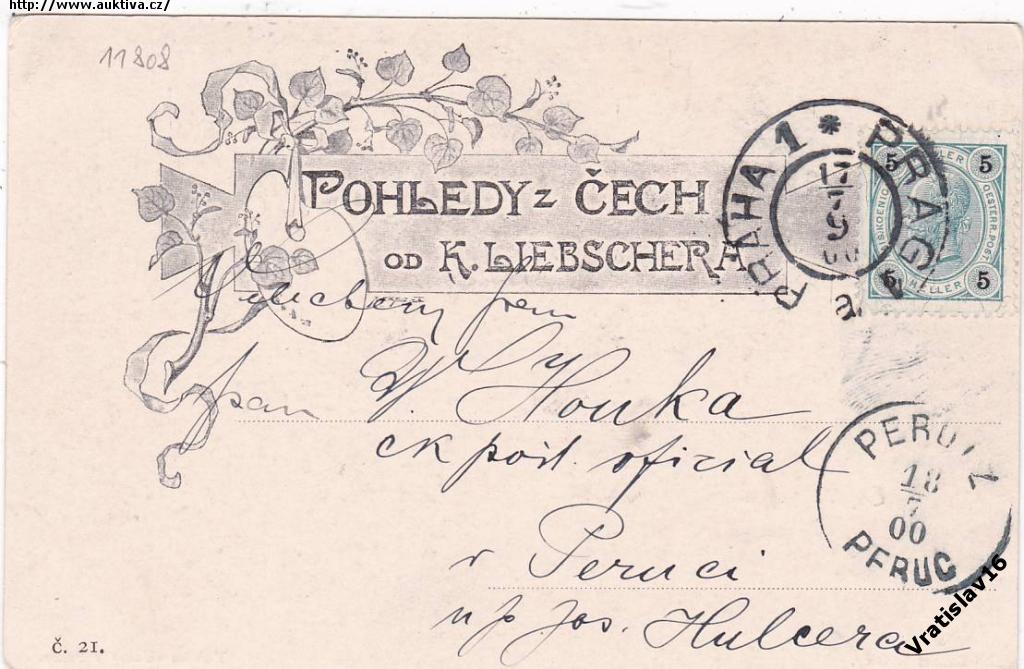 http://www.auktiva.cz/
11808
POHLEDY Z ČECH
OD K. LIEBSCHERA
PRAHA 1 * PRAG 1
17
7
9
00
5 HELLER 5
5 HELLER 5
pan W. Houka
ck pošt. oficial
v Peruci
u p Jos. Hulcera
PERUTZ
18
7
00
PERUC
č. 21.
Vratislav16